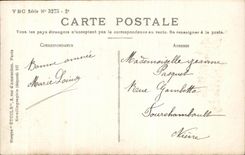 VRC Série Nº 3275 - 2º
CARTE POSTALE
Tous les pays étrangers n'acceptent pas la correspondance au recto. Se renseigner à la poste.
CORRESPONDANCE
ADRESSE
Bonne année
Marie Louise
Mademoiselle Yvonne
Paquet
Rue Gambetta
Fourchambault
Nièvre
Marque "ETOILE"